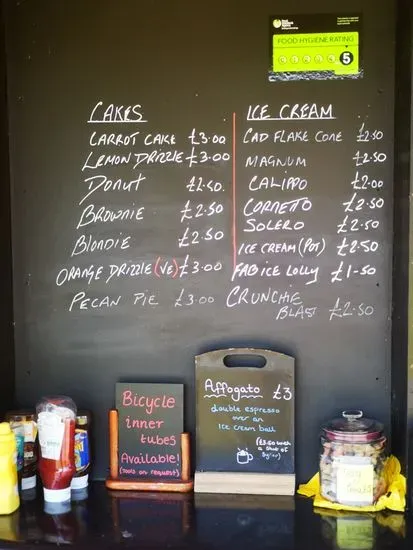 FOOD HYGIENE RATING
5
CAKES
CARROT CAKE £3.00
LEMON DRIZZLE £3.00
DONUT £1.50
BROWNIE £2.50
BLONDIE £2.50
ORANGE DRIZZLE (VE) £3.00
PECAN PIE £3.00
ICE CREAM
CAD FLAKE CONE £2.50
MAGNUM £2.50
CALIPPO £2.00
CORNETTO £2.50
SOLERO £2.50
ICE CREAM (POT) £2.50
FAB ICE LOLLY £1-50
CRUNCHIE
BLAST £2.50
Bicycle
inner
tubes
Available!
(tools on request)
Affogato £3
double espresso
over an
ice cream ball
(£3.50 with
a shot of